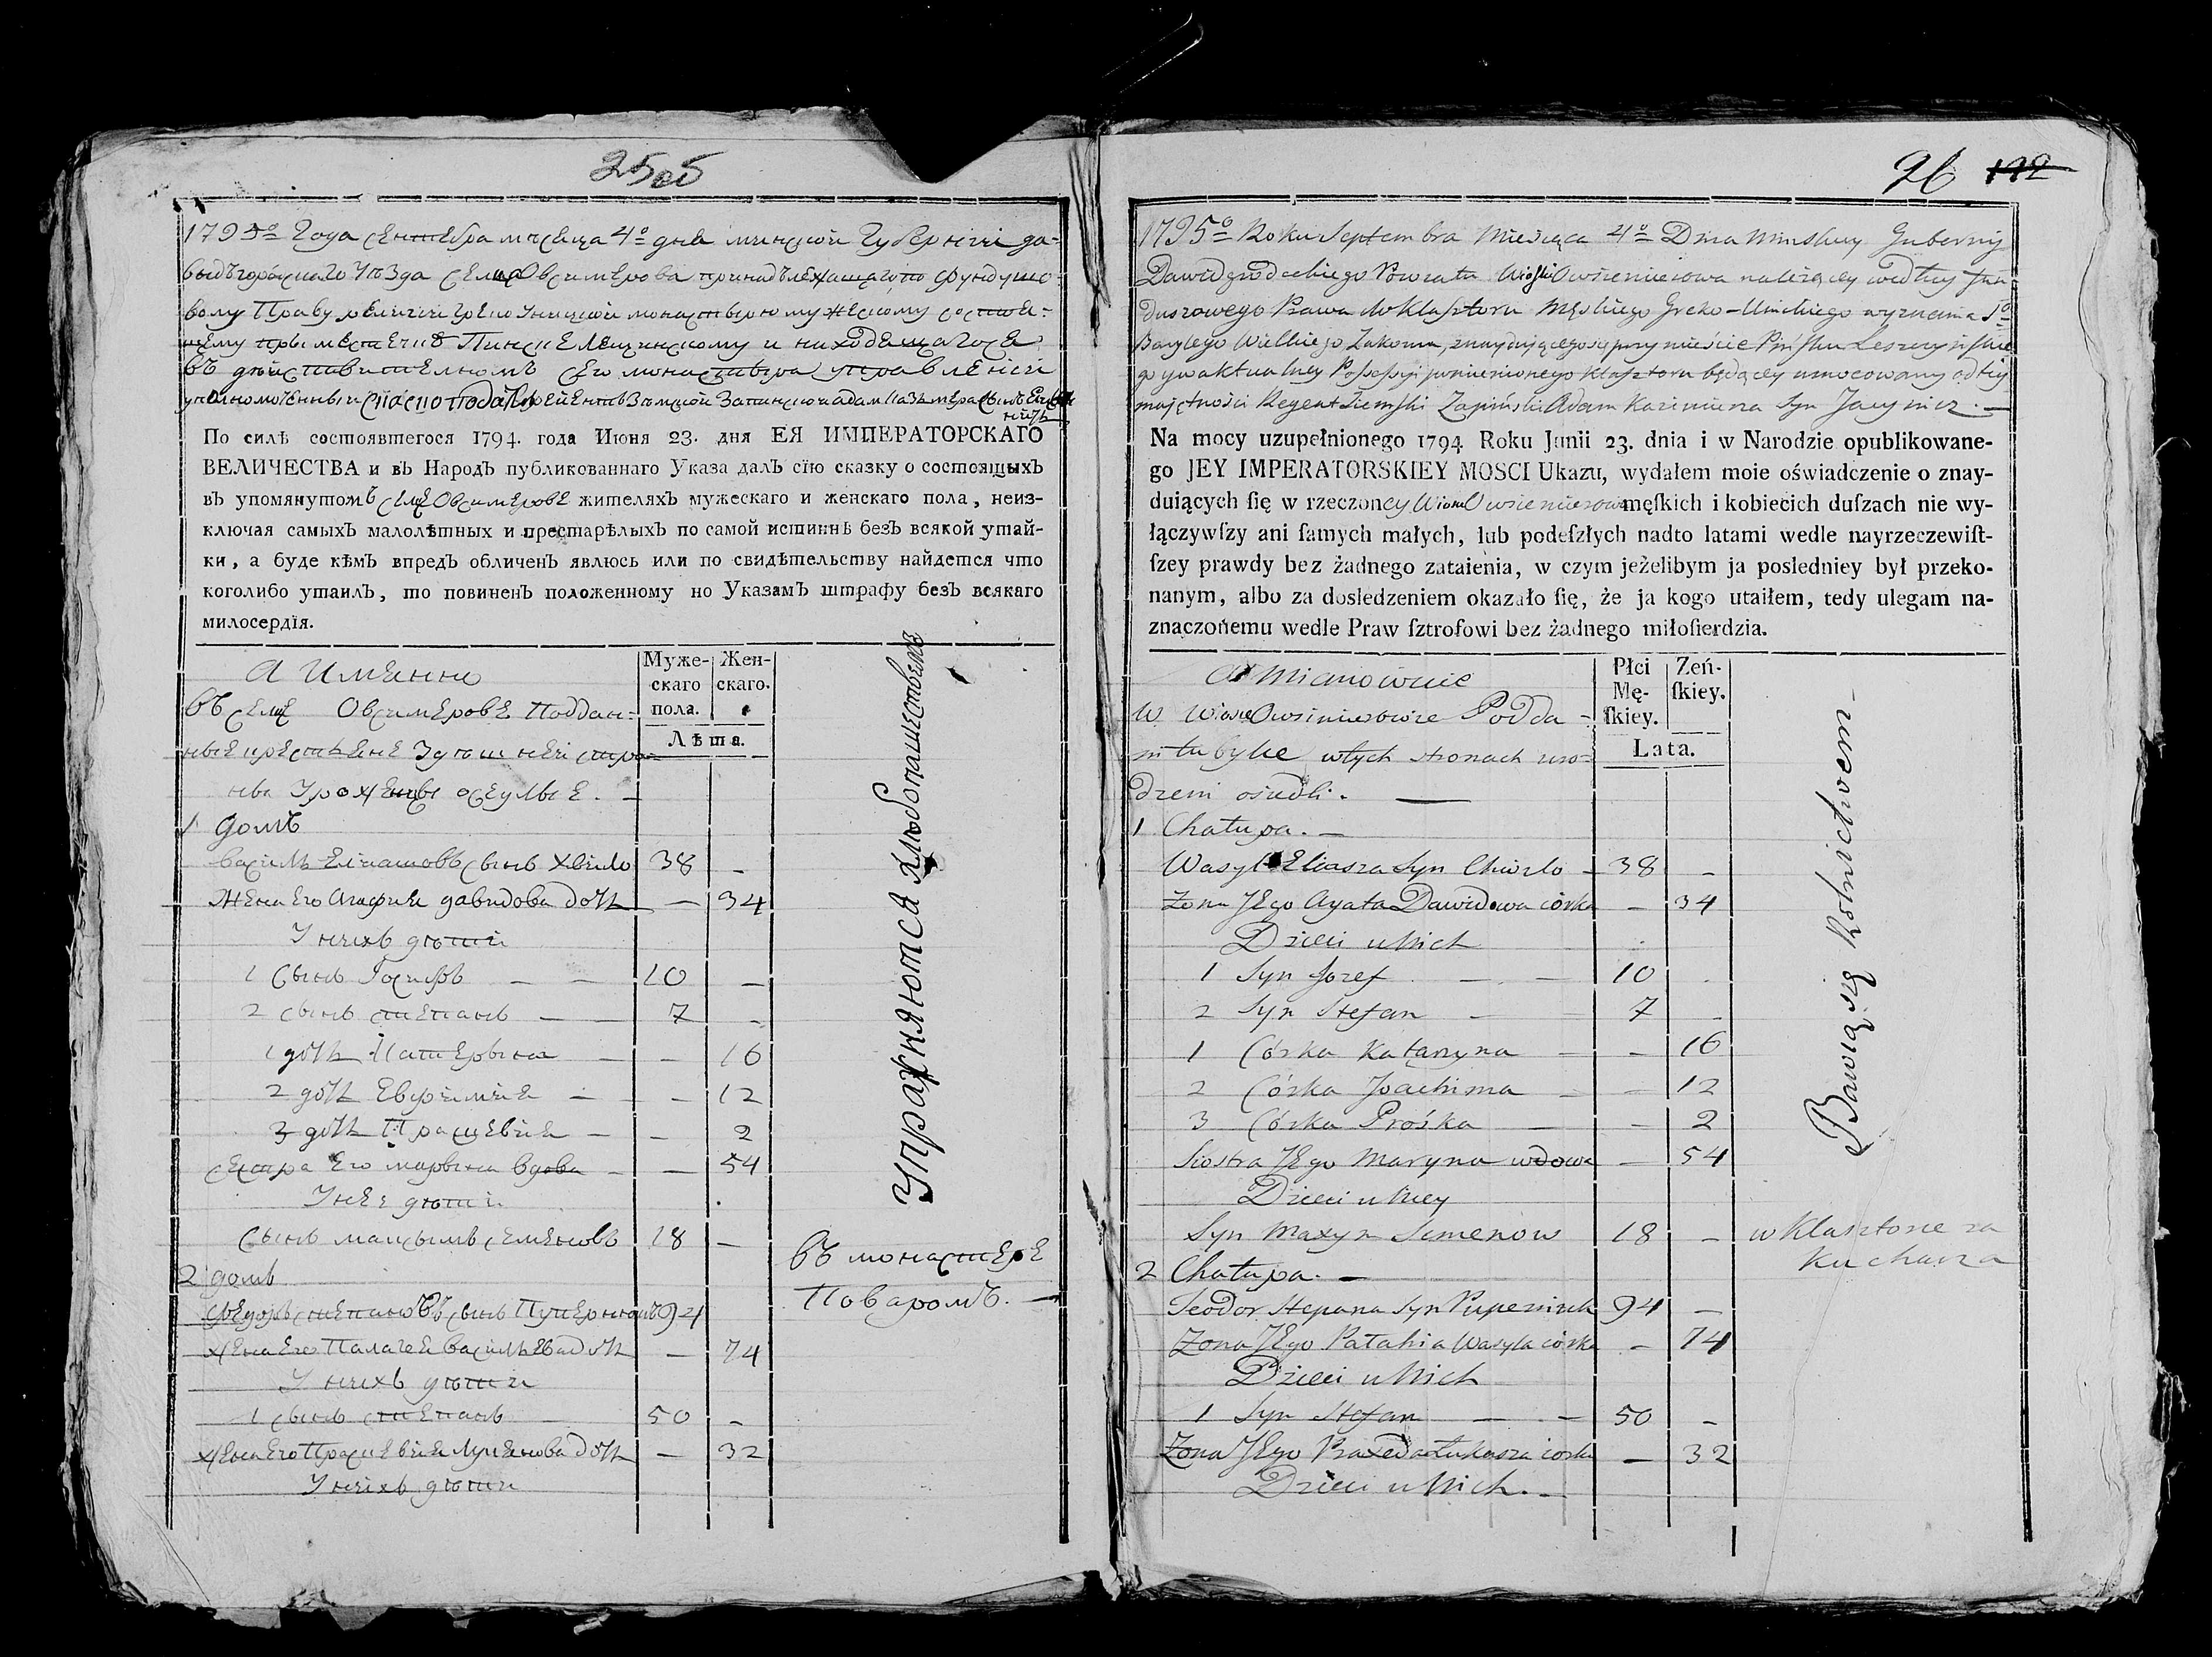 25об
1795º Года сентебра месеца 4º дня минской Губерниі да-
выдъгородскаго Уезда села Овсимерова принадълежащаго по фундушо-
вому Праву религиі греко Униской монастырю мужескому состоя-
щему при местечкѣ Пинске Лещинскому и находещагося
въ дѣйствителномъ сего монастыра управленіи
По силѣ состоявшегося 1794. года Июня 23. дня ЕЯ ИМПЕРАТОРСКАГО
ВЕЛИЧЕСТВА и въ Народъ публикованнаго Указа далъ сїю сказку о состоящыхъ
въ упомянутомъ селе Овсимерове жителяхъ мужескаго и женскаго пола, неиз-
ключая самыхъ малолѣтных и престарѣлыхъ по самой истиннѣ безъ всякой утай-
ки, а буде кѣмъ впредъ обличенъ явлюсь или по свидѣтельству найдется что
коголибо утаилъ, то повиненъ положенному по Указамъ штрафу безъ всякаго
милосердїя.
А Имянно
Муже-скаго пола.
Жен-скаго.
Лѣта.
въ селе Овсимерове Поддан-
ные крестьяне Зутошней стро-
ны Уроженцы оселые. —
1 домъ
Василь Еліашовъ сынъ Хвило 38 -
Жена его Агафия давидова дочь — 34
У ніхъ дѣти
1 Сынъ Іосифъ — — 10 —
2 сынъ степанъ — — 7 -
1 дочь Катерына — - 16
2 дочь Евфимия — - 12
3 дочь Прасцевия — - 2
сестра Его марына вдова - — 54
У нее дѣти
Сынъ максымъ семеновъ 18 —
2 домъ
Федоръ степановъ сынъ 94
жена его Палагея васильева дочь — 74
У нихъ дѣти
1 сынъ степанъ — 50 -
жена его Прасцевия Лукянова дочь — 32
У ніхъ дѣти
Упражняются хлѣбопашествомъ
въ монастере
Поваромъ. —
26 192
1795º Roku Septembra Miesiąca 4º Dnia Minskiey Gubernij
Dawidgrodzkiego Powiatu Wioski Owsiemierowa należącey wedłuy fun-
duszowego Prawa do Klasztoru Męskiego Greko-Unickiego wyznania So
Bazylego Wielkiego Zakonu, znayduiącego się przy mieście Pińsku Leszczyńskie-
go y w aktualney Possessyi pomienionego Klasztoru będącey umocowany od tey
majętności Regent Ziemski Zapiński Adam Kazimierza Syn
Na mocy uzupełnionego 1794 Roku Junii 23. dnia i w Narodzie opublikowane-
go JEY IMPERATORSKIEY MOSCI Ukazu, wydałem moie oświadczenie o znay-
duiących ſię w rzeczoney Wiosce Owsiemierowie męſkich i kobiecich duſzach nie wy-
łączywſzy ani ſamych małych, lub podeſzłych nadto latami wedle nayrzeczewiſt-
ſzey prawdy bez żadnego zataienia, w czym jeżelibym ja posledniey był przeko-
nanym, albo za dosledzeniem okazało ſię, że ja kogo utaiłem, tedy ulegam na-
znaczońemu wedle Praw ſztrofowi bez żadnego miłoſierdzia.
A Mianowicie
Płci Mę-ſkiey.
Zeń-ſkiey.
Lata.
W Wiosce Owsimierowie Podda-
ni tubylce w tych stronach uro-
dzeni osiedli. —
1 Chatupa. —
Wasyl Eliasza Syn Chwilo - 38 -
Zona JEgo Agata Dawidowa córka - 34
Dzieci u Nich
1 Syn Jozef — — 10 -
2 Syn Stefan — 7 -
1 Córka Katarzyna — - 16
2 Córka Joachima — - 12
3 Córka Próska — - 2
Siostra JEgo Maryna wdowa — 54
Dzieci u Niey
Syn Maxym Semenow 18 -
2 Chatupa. —
Teodor Stepana Syn 94 —
Zona JEgo Patahia Wasyla córka - 74
Dzieci u Nich
1 Syn Stefan — — 50 -
Zona JEgo Praxeda Łukasza corka — 32
Dzieci u Nich. —
Bawią się Rolnictwem —
w Klasztorze za
Kucharza